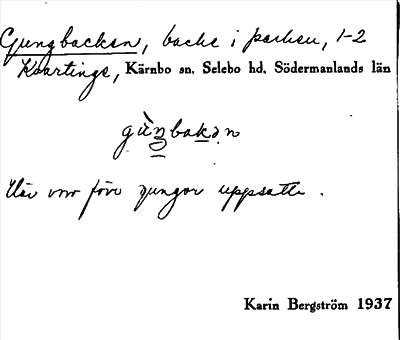 Gungbacken, backe i parken, 1-2
Kvartinge, Kärnbo sn. Selebo hd. Södermanlands län
gùŋbakən
Där var förr gungor uppsatta.
Karin Bergström 1937